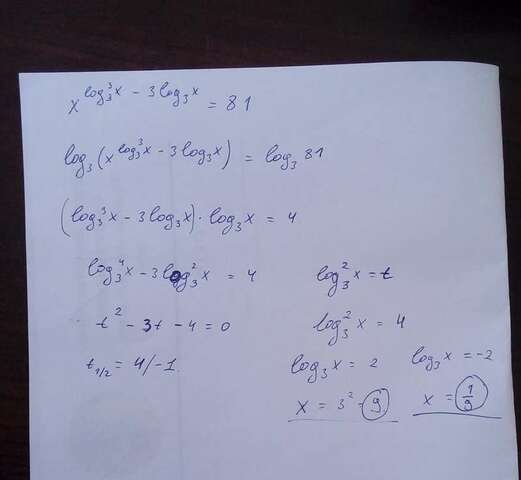 x^(log₃³x - 3log₃x) = 81
log₃(x^(log₃³x - 3log₃x)) = log₃ 81
(log₃³x - 3log₃x) · log₃x = 4
log₃⁴x - 3log₃²x = 4
log₃²x = t
t² - 3t - 4 = 0
log₃²x = 4
t₁/₂ = 4/-1.
log₃x = 2
log₃x = -2
x = 3² = 9
x = 1/9